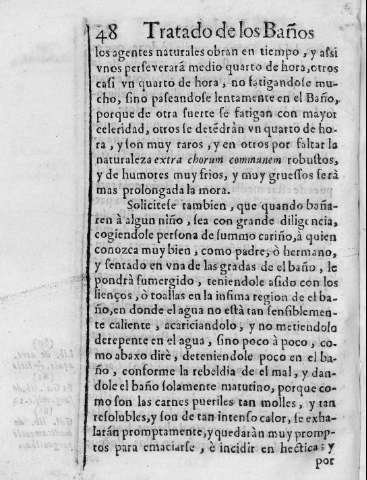 48 Tratado de los Baños
los agentes naturales obran en tiempo, y aſsi
vnos perſeverarà medio quarto de hora, otros
caſi vn quarto de hora, no fatigandoſe mu-
cho, ſino paſeandoſe lentamente en el Baño,
porque de otra ſuerte ſe fatigan con mayor
celeridad, otros ſe detẽdràn vn quarto de ho-
ra, y ſon muy raros, y en otros por faltar la
naturaleza extra chorum communem robuſtos,
y de humores muy frios, y muy grueſſos ſerà
mas prolongada la mora.
Soliciteſe tambien, que quando baña-
ren à algun niño, ſea con grande diligencia,
cogiendole perſona de ſummo cariño, à quien
conozca muy bien, como padre, ò hermano,
y ſentado en vna de las gradas de el baño, le
pondrà ſumergido, teniendole aſido con los
lienços, ò toallas en la inſima region de el ba-
ño, en donde el agua no eſtà tan ſenſiblemen-
te caliente, acariciandolo, y no metiendolo
derepente en el agua, ſino poco à poco, co-
mo abaxo dirè, deteniendole poco en el ba-
ño, conforme la rebeldia de el mal, y dan-
dole el baño ſolamente matutino, porque co-
mo ſon las carnes pueriles tan molles, y tan
reſolubles, y ſon de tan intenſo calor, ſe exha-
laràn promptamente, y quedaràn muy promp-
tos para emaciarſe, è incidir en hectica: y
por